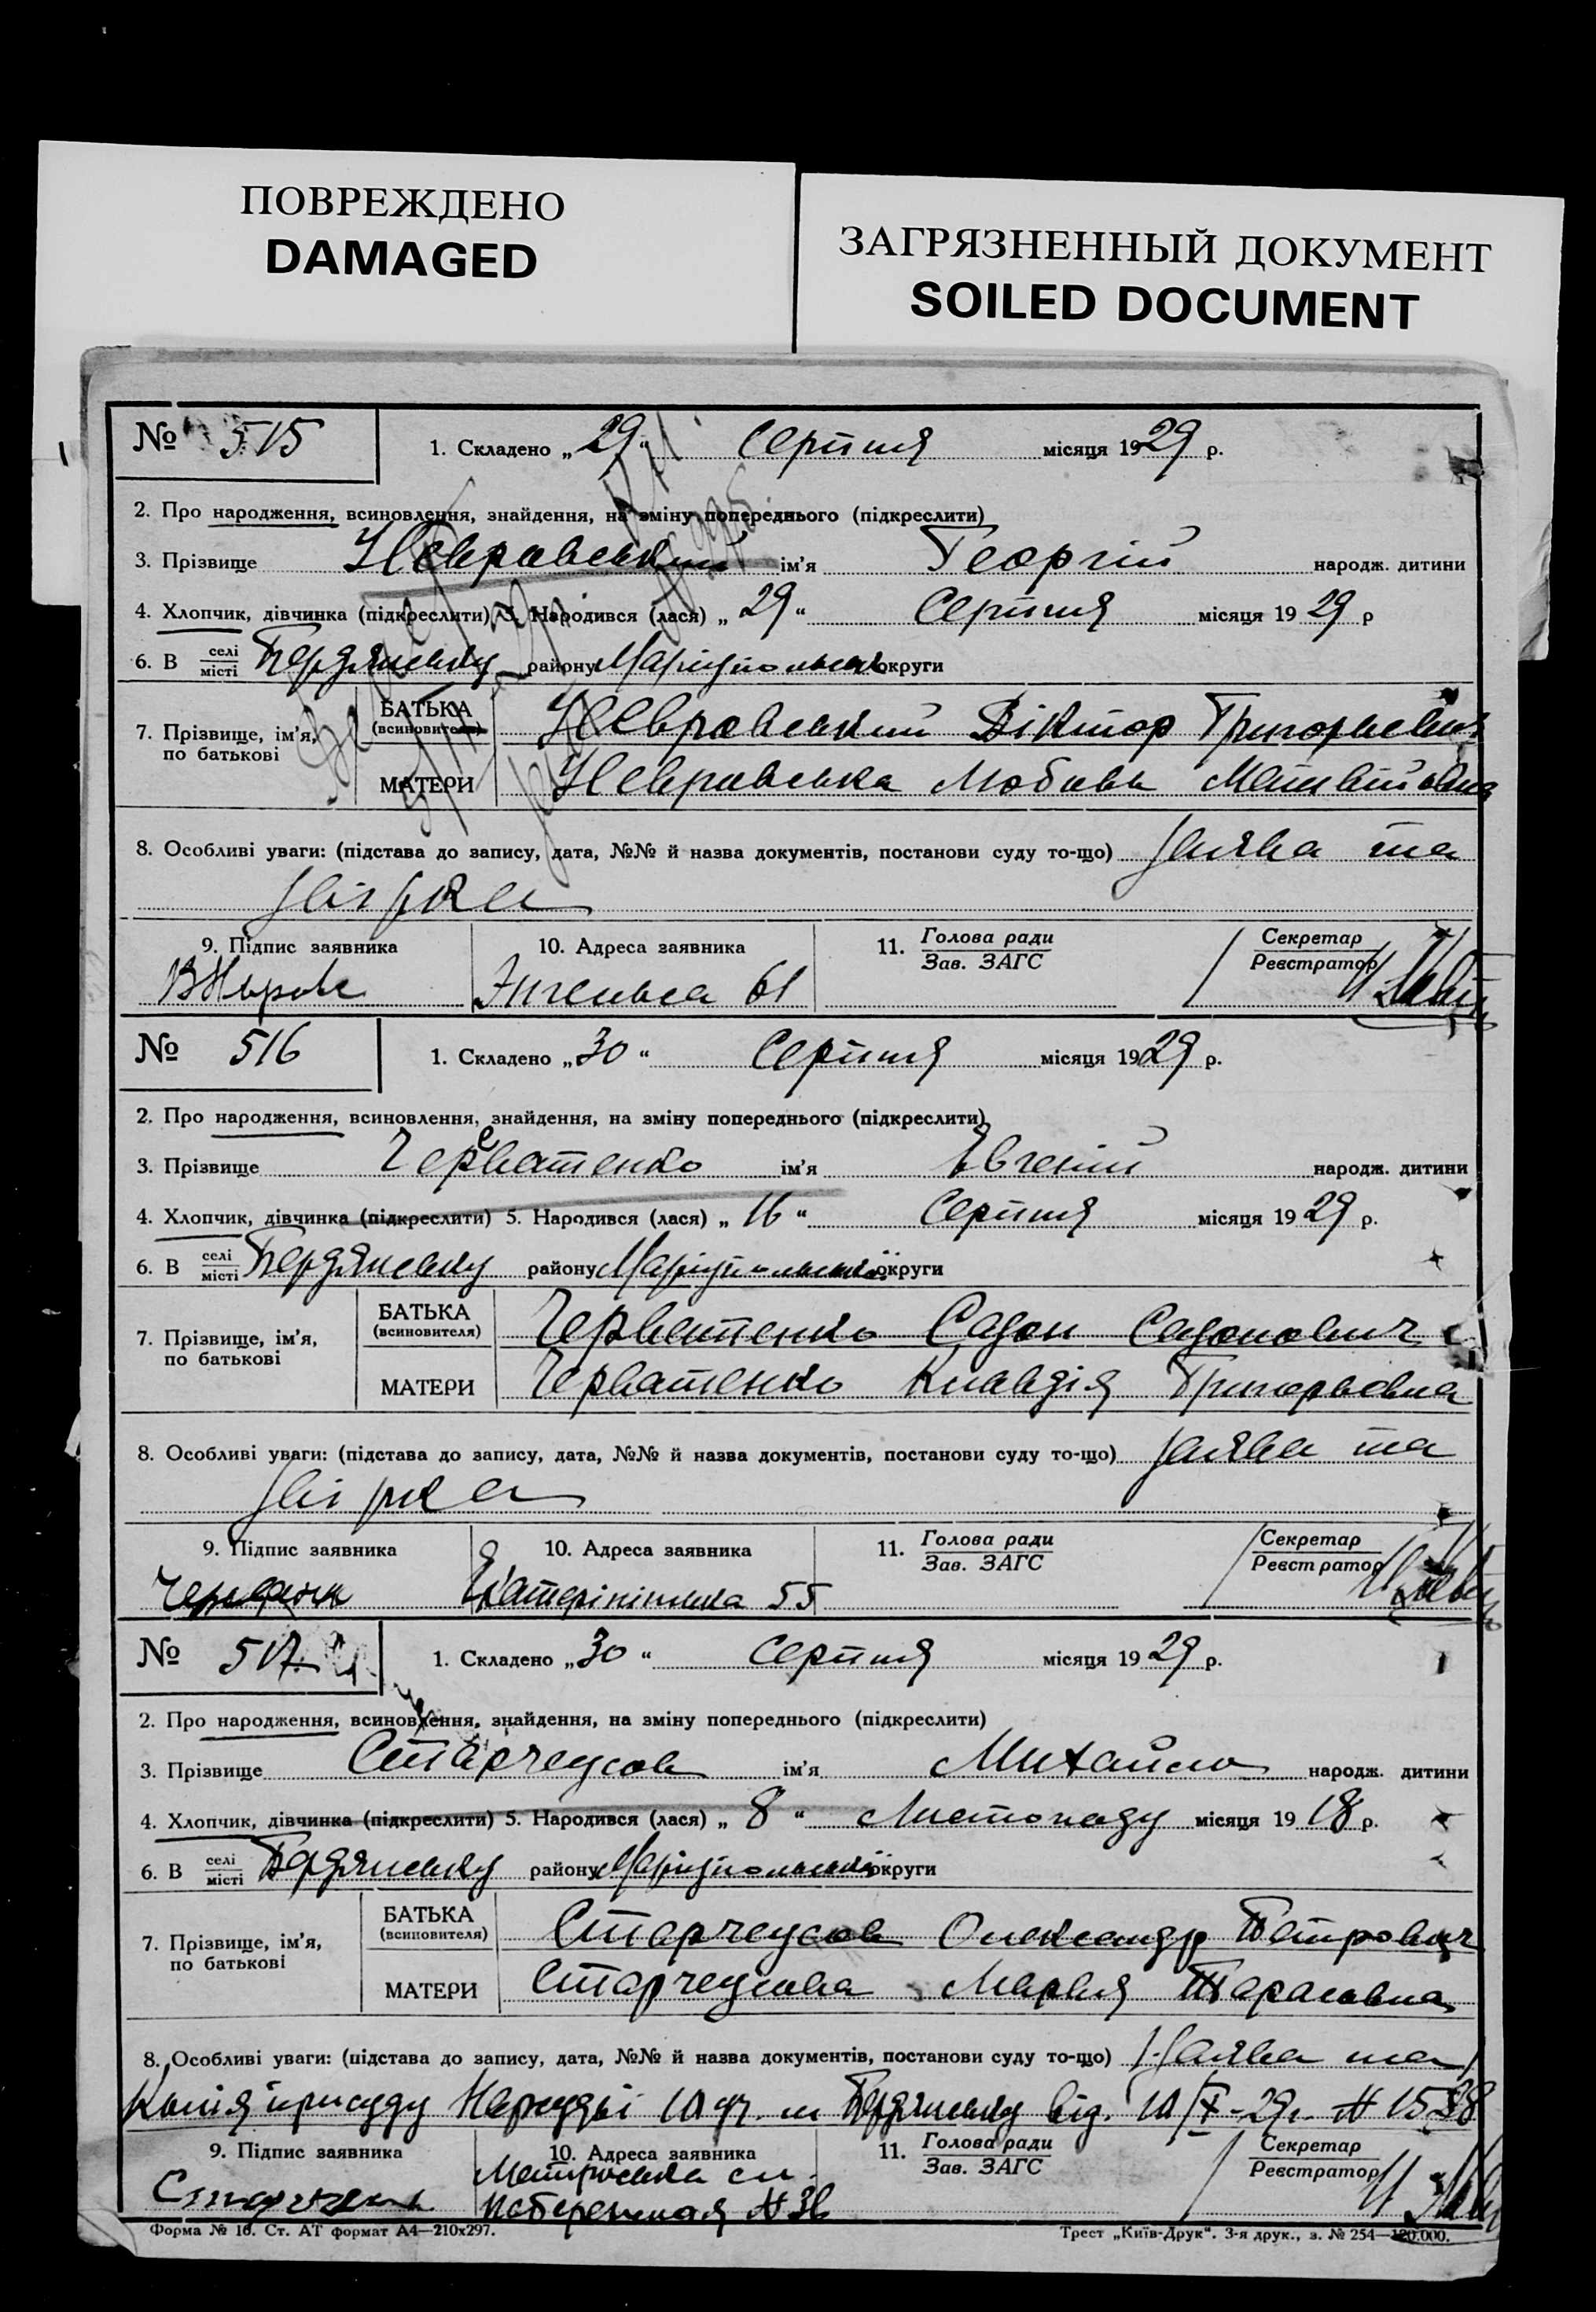 ПОВРЕЖДЕНО
DAMAGED
ЗАГРЯЗНЕННЫЙ ДОКУМЕНТ
SOILED DOCUMENT
№ 515
1. Складено „29“ Серпня місяця 1929 р.
2. Про народження, всиновлення, знайдення, на зміну попереднього (підкреслити)
3. Прізвище Невравський ім'я Георгій народж. дитини
4. Хлопчик, дівчинка (підкреслити) 5. Народився (лася) „29“ Серпня місяця 1929 р
6. В селі місті Бердянську району Маріупольськ округи
7. Прізвище, ім'я, по батькові
БАТЬКА (всиновителя) Невравський Віктор Григорьевич
МАТЕРИ Невравська Любовь Матвійовна
8. Особливі уваги: (підстава до запису, дата, №№ й назва документів, постанови суду то-що) Заява та
звірка
9. Підпис заявника
10. Адреса заявника Энгельса 61
11. Голова ради Зав. ЗАГС
Секретар Реєстратор
№ 516
1. Складено „30“ Серпня місяця 1929 р.
2. Про народження, всиновлення, знайдення, на зміну попереднього (підкреслити)
3. Прізвище Черватенко ім'я Євгеній народж. дитини
4. Хлопчик, дівчинка (підкреслити) 5. Народився (лася) „16“ Серпня місяця 1929 р.
6. В селі місті Бердянську району Маріупольської округи
7. Прізвище, ім'я, по батькові
БАТЬКА (всиновителя) Черватенко Садон Садонович
МАТЕРИ Черватенко Клавдія Григорьевна
8. Особливі уваги: (підстава до запису, дата, №№ й назва документів, постанови суду то-що) Заява та
звірка
9. Підпис заявника
10. Адреса заявника Катерінінська 55
11. Голова ради Зав. ЗАГС
Секретар Реєстратор
№ 517
1. Складено „30“ Серпня місяця 1929 р.
2. Про народження, всиновлення, знайдення, на зміну попереднього (підкреслити)
3. Прізвище Старчеусов ім'я Михайло народж. дитини
4. Хлопчик, дівчинка (підкреслити) 5. Народився (лася) „8“ Листопаду місяця 1918 р.
6. В селі місті Бердянську району Маріупольської округи
7. Прізвище, ім'я, по батькові
БАТЬКА (всиновителя) Старчеусов Олександр Петрович
МАТЕРИ Старчеусова Марья Тарасовна
8. Особливі уваги: (підстава до запису, дата, №№ й назва документів, постанови суду то-що) Заява та
Копія присуду Нарсудді дч. м Бердянську від. 29 р. № 1538
9. Підпис заявника
10. Адреса заявника Матроська сл.
Набережная № 36
11. Голова ради Зав. ЗАГС
Секретар Реєстратор
Форма № 16. Ст. АТ формат А4—210х297.
Трест „Київ-Друк“. 3-я друк., з. № 254—120.000.